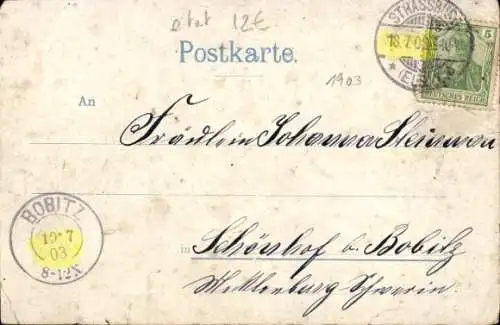 etat 12€
Postkarte.
STRASSBURG
5
1903
(ELS.)
DEUTSCHES REICH
An
Fräulein Johanna Steinman
BOBITZ
19 7
03
8-12N
in Schönhof b. Bobitz
Mecklenburg Schwerin.